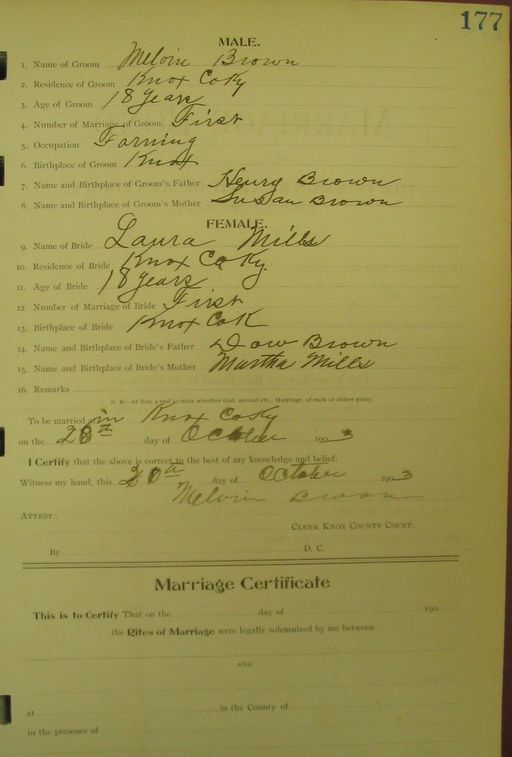 177
MALE.
1. Name of Groom Melvin Brown
2. Residence of Groom Knox Co Ky
3. Age of Groom 18 years
4. Number of Marriage of Groom First
5. Occupation Farming
6. Birthplace of Groom Knox
7. Name and Birthplace of Groom's Father Henry Brown
8. Name and Birthplace of Groom's Mother Susan Brown
FEMALE.
9. Name of Bride Laura Mills
10. Residence of Bride Knox Co Ky.
11. Age of Bride 18 years
12. Number of Marriage of Bride First
13. Birthplace of Bride Knox Co K
14. Name and Birthplace of Bride's Father Dow Brown
15. Name and Birthplace of Bride's Mother Martha Mills
16. Remarks
N. B.—At Nos. 4 and 12 state whether first, second etc., Marriage, of each or either party.
To be married in Knox Co Ky
on the 28th day of October 1903
I Certify that the above is correct to the best of my knowledge and belief.
Witness my hand, this day of October 1903
Melvin Brown
ATTEST:
CLERK KNOX COUNTY COURT.
By D. C.
Marriage Certificate
This is to Certify That on the day of 190
the Rites of Marriage were legally solemnized by me between
AND
at in the County of
in the presence of